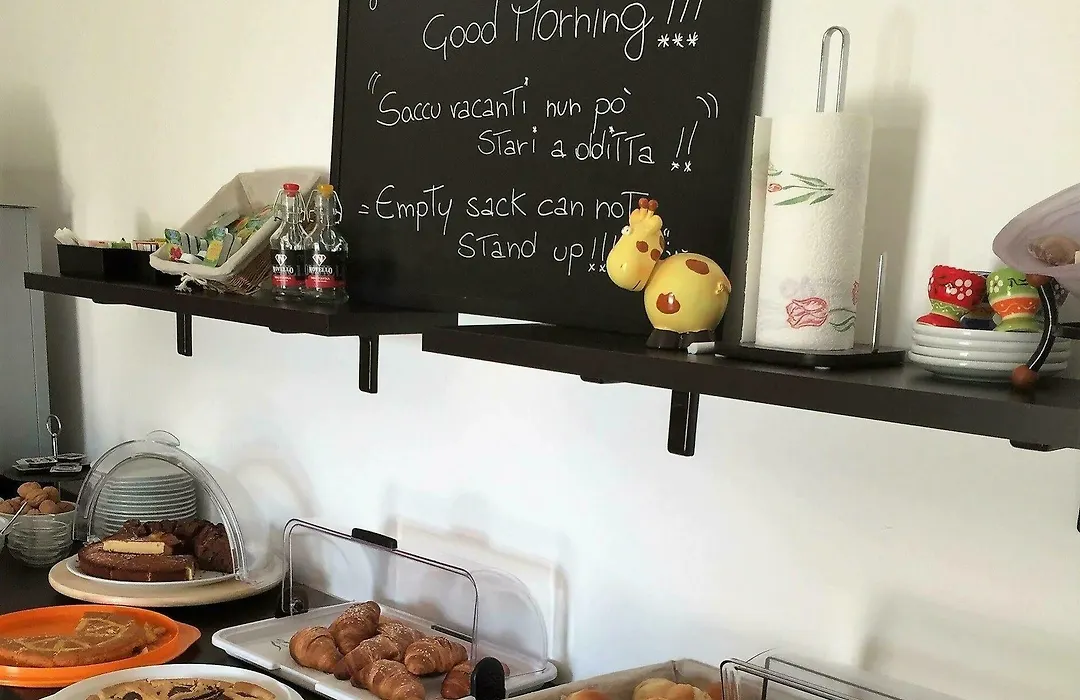 Good Morning !!!
"Saccu vacanti nun pò
stari a dditta !!"
= Empty sack can not
stand up!!!
NOVELLO
NOVELLO